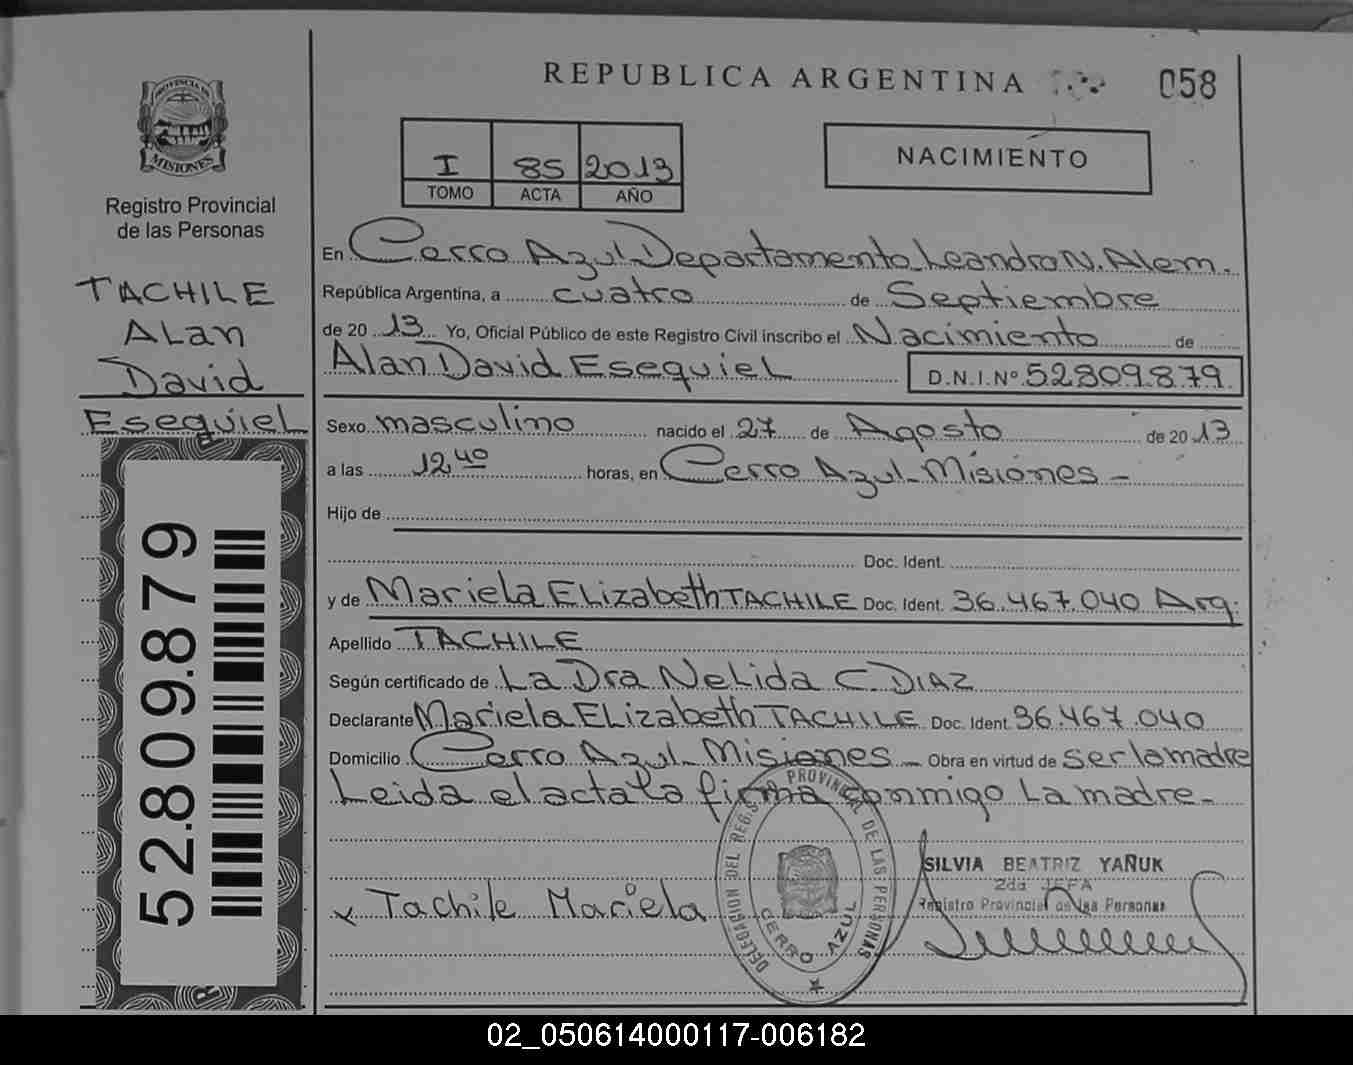 REPUBLICA ARGENTINA
058
PROVINCIA DE
MISIONES
Registro Provincial
de las Personas
I 85 2013
TOMO ACTA AÑO
NACIMIENTO
TACHILE
Alan
David
Esequiel
52.809.879
En Cerro Azul Departamento Leandro N. Alem.
República Argentina, a cuatro de Septiembre
de 20 13 Yo, Oficial Público de este Registro Civil inscribo el Nacimiento de
Alan David Esequiel D.N.I.Nº 52.809.879.
Sexo masculino nacido el 27 de Agosto de 20 13
a las 12,40 horas, en Cerro Azul - Misiones -
Hijo de
Doc. Ident.
y de Mariela Elizabeth TACHILE Doc. Ident. 36.467.040 Arg.
Apellido TACHILE
Según certificado de La Dra Nelida C. DIAZ
Declarante Mariela Elizabeth TACHILE Doc. Ident. 36.467.040
Domicilio Cerro Azul - Misiones - Obra en virtud de ser la madre
Leida el acta la firma conmigo La madre -
x Tachile Mariela
DELEGACION DEL REGISTRO PROVINCIAL DE LAS PERSONAS
CERRO AZUL
SILVIA BEATRIZ YAÑUK
2da JEFA
Registro Provincial de las Personas
02_050614000117-006182